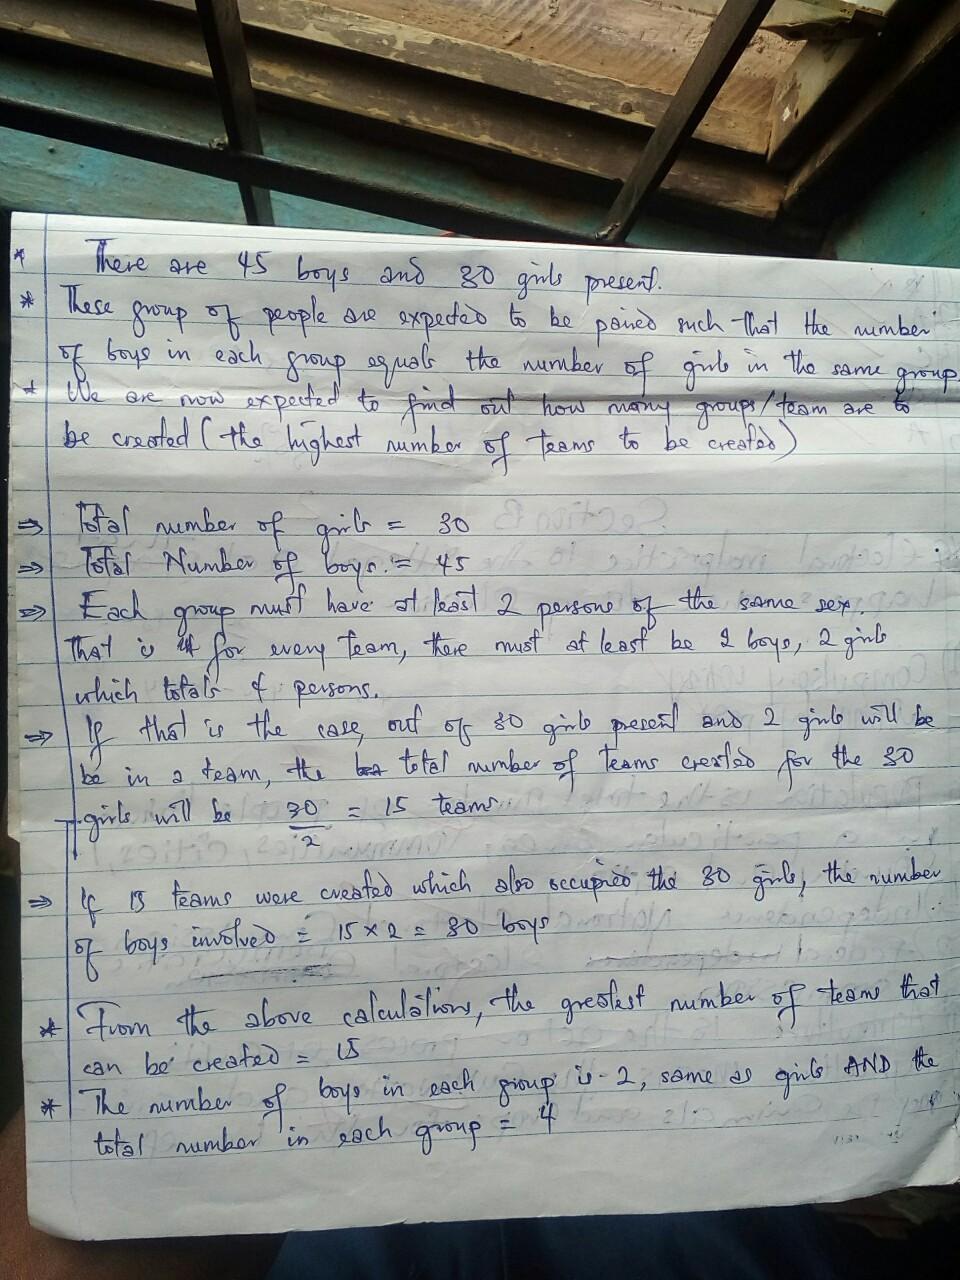 * There are 45 boys and 30 girls present.
* These group of people are expected to be paired such that the number
of boys in each group equals the number of girls in the same group.
* We are now expected to find out how many groups/team are to
be created (the highest number of teams to be created)
⇒ Total number of girls = 30
⇒ Total Number of boys = 45
⇒ Each group must have at least 2 persons of the same sex.
That is for every team, there must at least be 2 boys, 2 girls
which totals 4 persons.
⇒ If that is the case, out of 30 girls present and 2 girls will be
be in a team, the total number of teams created for the 30
girls will be 30/2 = 15 teams
⇒ If 15 teams were created which also occupied the 30 girls, the number
of boys involved = 15 x 2 = 30 boys
* From the above calculations, the greatest number of teams that
can be created = 15
* The number of boys in each group is 2, same as girls AND the
total number in each group = 4